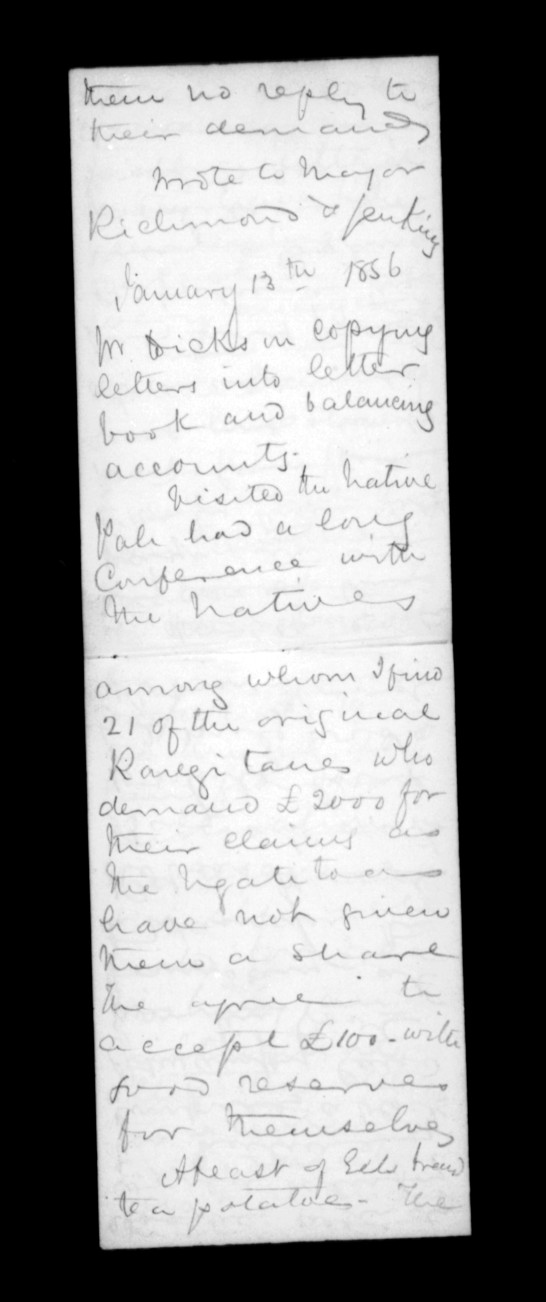 them no reply to
their demands
Wrote to Mayor
Richmond & Jenkins
January 13th 1856
Mr Dickson copying
letters into letter
book and balancing
accounts.
Visited the Native
Pah had a long
Conference with
the Natives
among whom I find
21 of the original
Rangitanes who
demand £2000 for
their claims as
the Ngatitoas
have not given
them a share
The agree to
accept £100 - with
good reserves
for themselves
A feast of Eels bread
tea potatoes - The